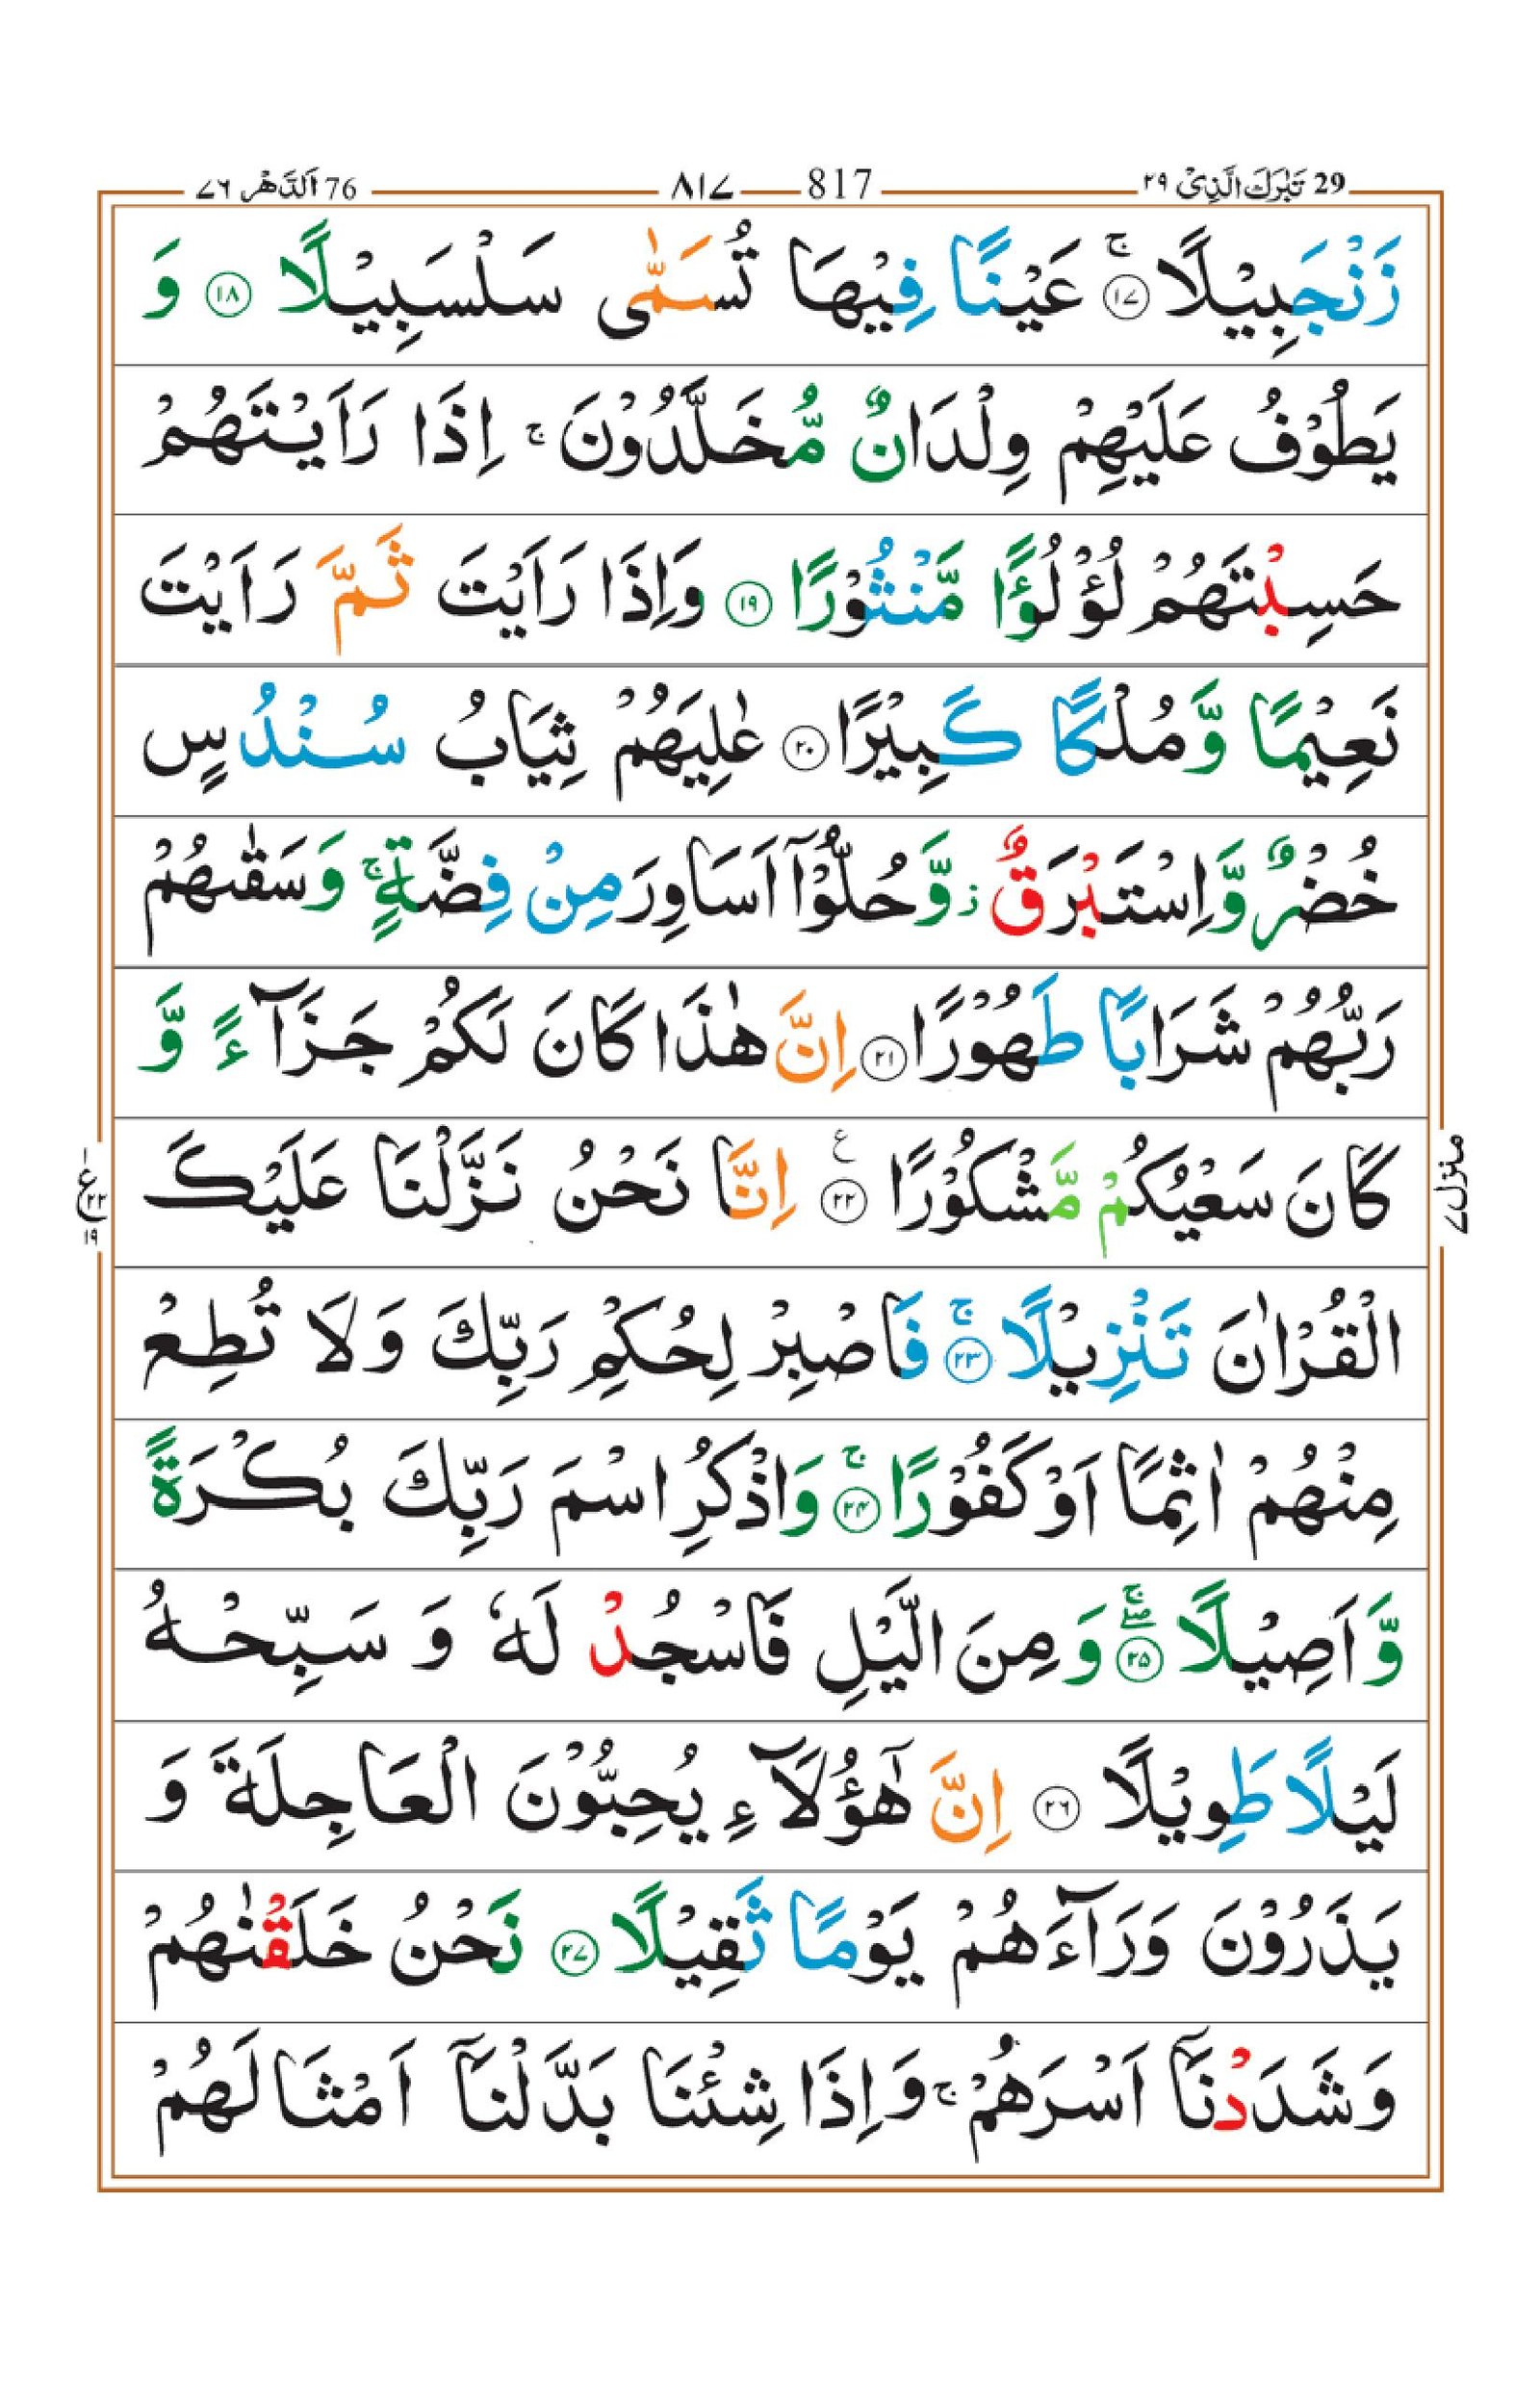 29 تَبٰرَكَ الَّذِیْ ۲۹
817 ۸۱۷
76 اَلدَّهْر ۷۶
زَنْجَبِیْلًا ۚ ﴿۱۷﴾ عَیْنًا فِیْهَا تُسَمّٰی سَلْسَبِیْلًا ﴿۱۸﴾ وَ
یَطُوْفُ عَلَیْهِمْ وِلْدَانٌ مُّخَلَّدُوْنَ ۚ اِذَا رَاَیْتَهُمْ
حَسِبْتَهُمْ لُؤْلُؤًا مَّنْثُوْرًا ﴿۱۹﴾ وَاِذَا رَاَیْتَ ثَمَّ رَاَیْتَ
نَعِیْمًا وَّمُلْكًا كَبِیْرًا ﴿۲۰﴾ عٰلِیَهُمْ ثِیَابُ سُنْدُسٍ
خُضْرٌ وَّاِسْتَبْرَقٌ ؗ وَّحُلُّوْۤا اَسَاوِرَ مِنْ فِضَّةٍ ۚ وَسَقٰىهُمْ
رَبُّهُمْ شَرَابًا طَهُوْرًا ﴿۲۱﴾ اِنَّ هٰذَا كَانَ لَكُمْ جَزَآءً وَّ
كَانَ سَعْیُكُمْ مَّشْكُوْرًا ﴿۲۲﴾ ع اِنَّا نَحْنُ نَزَّلْنَا عَلَیْكَ
ع ۲۲ ۱۹
منزل ۷
الْقُرْاٰنَ تَنْزِیْلًا ۚ ﴿۲۳﴾ فَاصْبِرْ لِحُكْمِ رَبِّكَ وَلَا تُطِعْ
مِنْهُمْ اٰثِمًا اَوْ كَفُوْرًا ۚ ﴿۲۴﴾ وَاذْكُرِ اسْمَ رَبِّكَ بُكْرَةً
وَّاَصِیْلًا ۖۚ ﴿۲۵﴾ وَمِنَ الَّیْلِ فَاسْجُدْ لَهٗ وَ سَبِّحْهُ
لَیْلًا طَوِیْلًا ﴿۲۶﴾ اِنَّ هٰۤؤُلَآءِ یُحِبُّوْنَ الْعَاجِلَةَ وَ
یَذَرُوْنَ وَرَآءَهُمْ یَوْمًا ثَقِیْلًا ﴿۲۷﴾ نَحْنُ خَلَقْنٰهُمْ
وَشَدَدْنَاۤ اَسْرَهُمْ ۚ وَاِذَا شِئْنَا بَدَّلْنَاۤ اَمْثَالَهُمْ